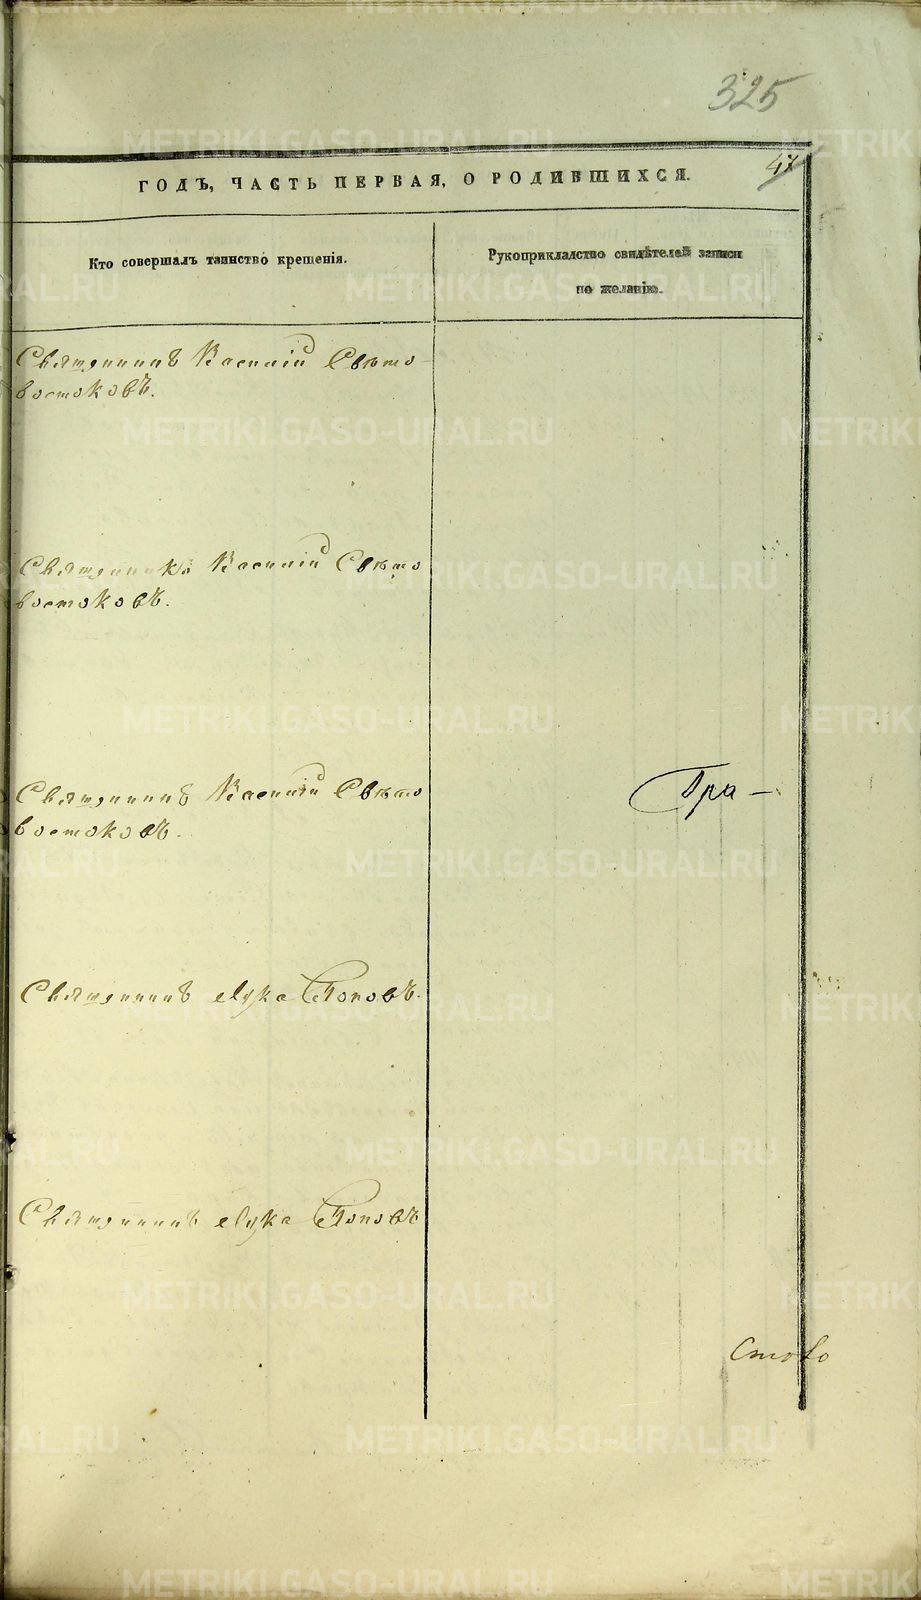 325
47
ГОДЪ, ЧАСТЬ ПЕРВАЯ, О РОДИВШИХСЯ.
Кто совершалъ таинство крещенія.
Рукоприкладство свидѣтелей записи
по желанію.
Священникъ Василій Свѣто-
востоковъ.
Священникъ Василій Свѣто
востоковъ.
Священникъ Василій Свѣто
востоковъ.
Гра-
Священникъ Лука Поповъ.
Священникъ Лука Поповъ
METRIKI.GASO-URAL.RU